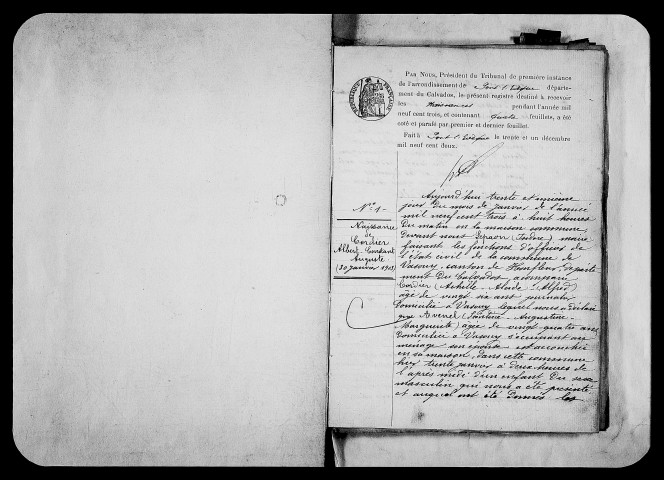 Par Nous, Président du Tribunal de première instance
de l'arrondissement de Pont l'Evêque départe-
ment du Calvados, le présent registre destiné à recevoir
les Naissances pendant l'année mil
neuf cent trois, et contenant quatre feuillets, a été
coté et parafé par premier et dernier feuillet.
Fait à Pont l'Evêque le trente et un décembre
mil neuf cent deux.
N° 1
Naissance
de
Cordier
Albert Constant
Auguste
(30 janvier 1903)
Aujourd'hui trente et unième
jour du mois de janvier de l'année
mil neuf cent trois à huit heures
du matin en la maison commune,
devant nous maire
faisant les fonctions d'officier de
l'état civil de la commune de
Vasouy, canton de Honfleur, départe
ment du Calvados a comparu
Cordier (Achille Alfred)
âgé de vingt six ans journalier
domicilié à Vasouy lequel nous a déclaré
que Avenel (Augustine
Marguerite) âgée de vingt quatre ans
domiciliée à Vasouy s'occupant au
ménage son épouse est accouchée
en sa maison, dans cette commune
hier trente janvier à deux heures de
l'après midi d'un enfant du sexe
masculin qui nous a été présenté
et auquel ont été donnés les